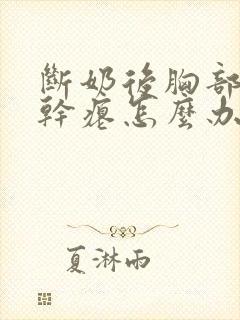 斷奶後胸部
幹癟怎麼办
夏淋雨